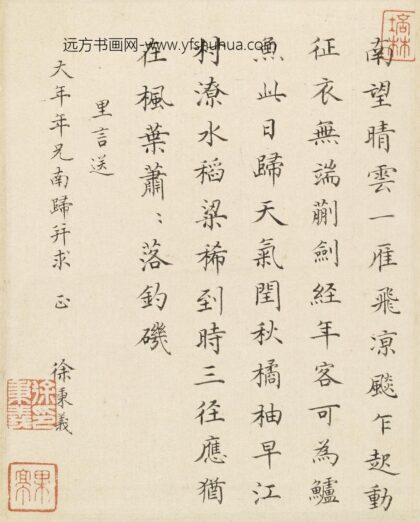 远方书画网-www.yfshuhua.com
培林
南望晴雲一雁飛凉颷乍起動
征衣無端蒯劍経年客可為鱸
魚此日歸天氣閏秋橘柚早江
村潦水稻粱稀到時三径應猶
在楓葉蕭〻落釣磯
里言送
大年年兄南歸幷求 正
徐秉義
徐印秉義
果亭